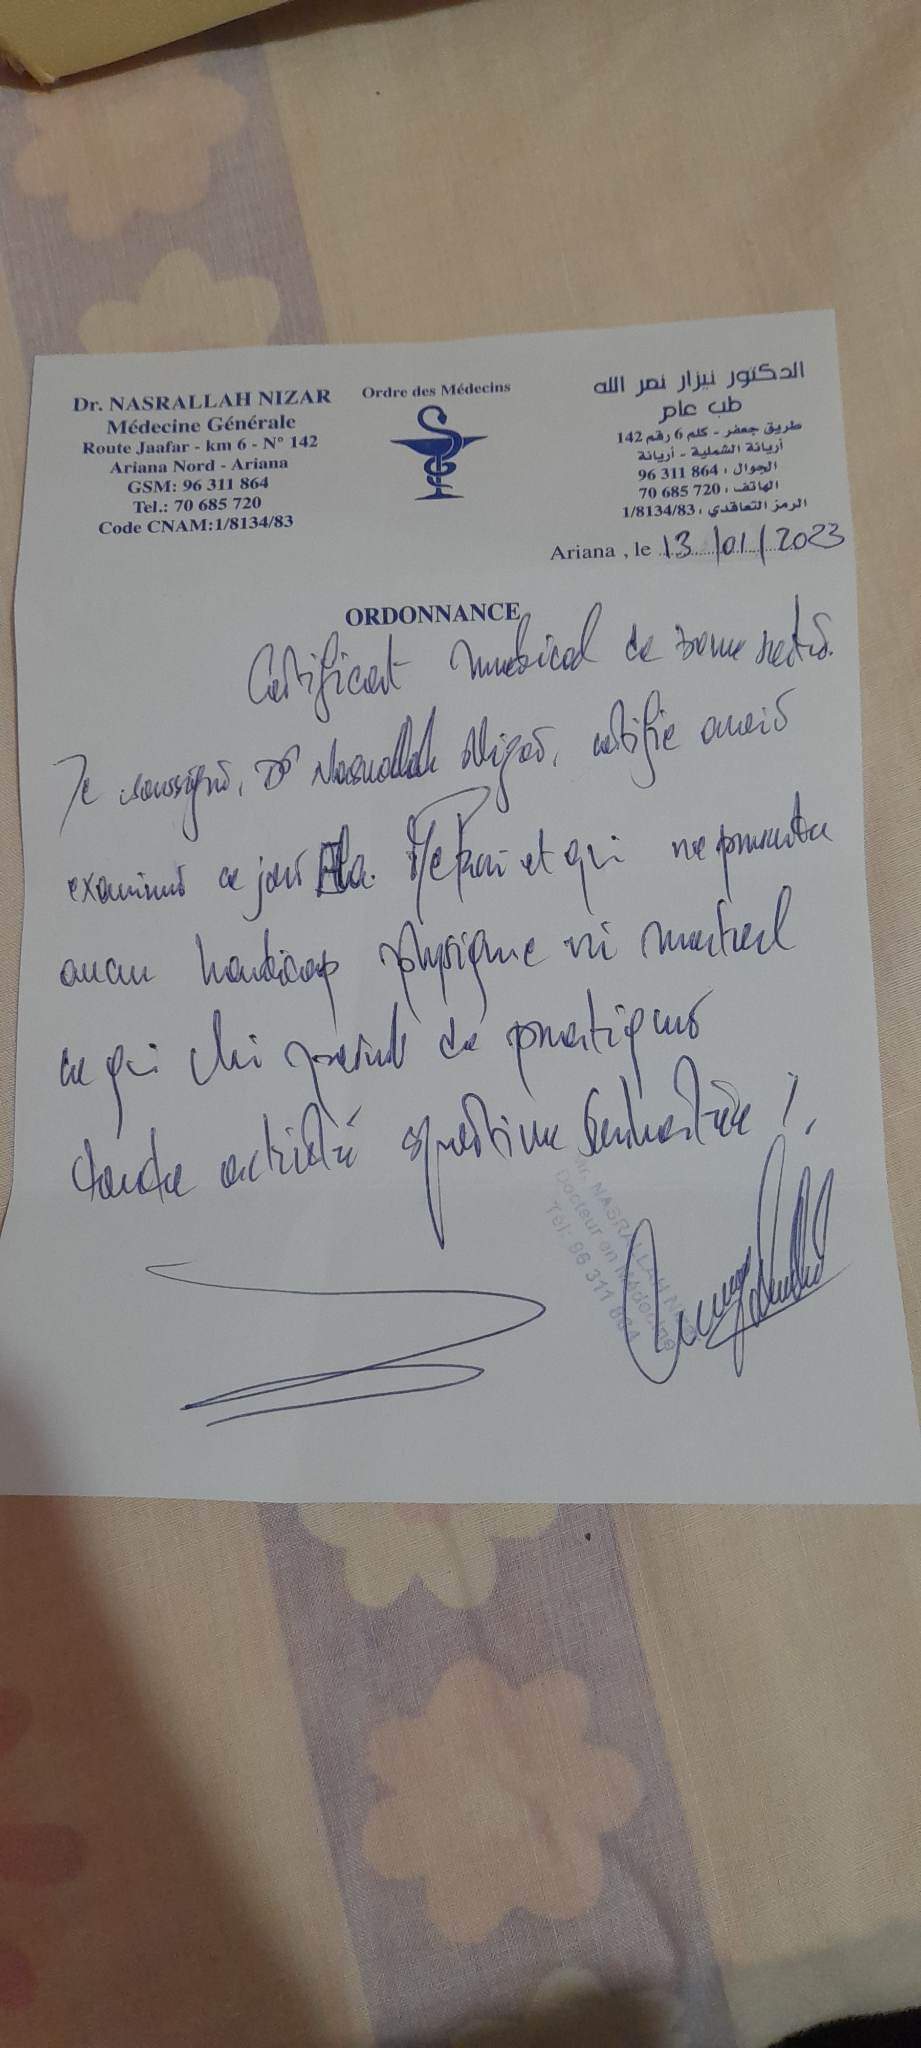 Dr. NASRALLAH NIZAR
Médecine Générale
Route Jaafar - km 6 - N° 142
Ariana Nord - Ariana
GSM: 96 311 864
Tel.: 70 685 720
Code CNAM:1/8134/83
Ordre des Médecins
الدكتور نيزار نصر الله
طب عام
طريق جعفر - كلم 6 رقم 142
أريانة الشمالية - أريانة
الجوال : 864 311 96
الهاتف : 720 685 70
الرمز التعاقدي : 1/8134/83
Ariana , le 13/01/2023
ORDONNANCE
Certificat médical de bonne santé.
Je soussigné, Dr Nasrallah Nizar, certifie avoir
examiné ce jour et qui ne présente
aucun handicap physique ni mental
ce qui lui permet de pratiquer
toute activité sportive
Dr. NASRALLAH NIZAR
Docteur en Médecine
Tél: 96 311 864